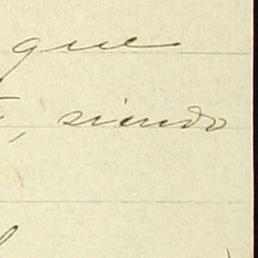 que
, siendo